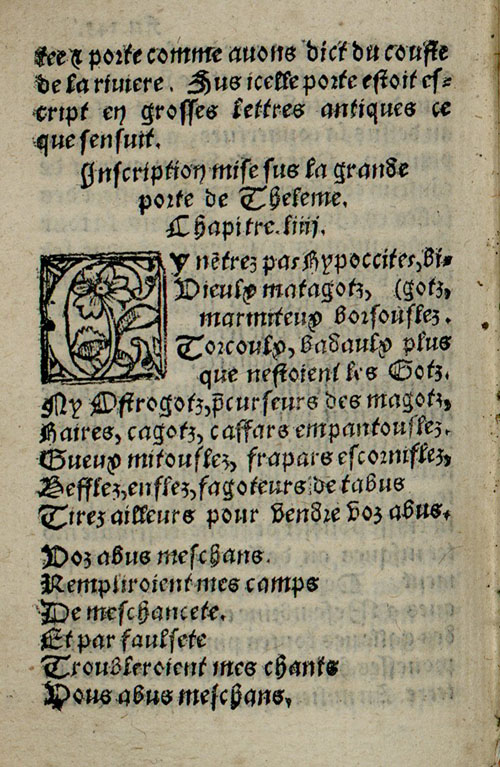 tee & porte comme avons dict du couste
de la riviere. Sus icelle porte estoit es-
cript en grosses lettres antiques ce
que sensuit.
Inscription mise sus la grande
porte de Theleme.
Chapitre.liiij.
Cy nētrez pas Hypoccites, bi-
Vieulx matagotz, (gotz,
marmiteux borsouflez.
Torcoulx, badaulx plus
que nestoient les Gotz.
Ny Ostrogotz, p̄curseurs des magotz,
Haires, cagotz, caffars empantouflez.
Gueux mitouflez, frapars escorniflez,
Befflez, enflez, fagoteurs de tabus
Tirez ailleurs pour vendre voz abus.
Voz abus meschans.
Rempliroient mes camps
De meschancete.
Et par faulsete
Troubleroient mes chants
Vous abus meschans,